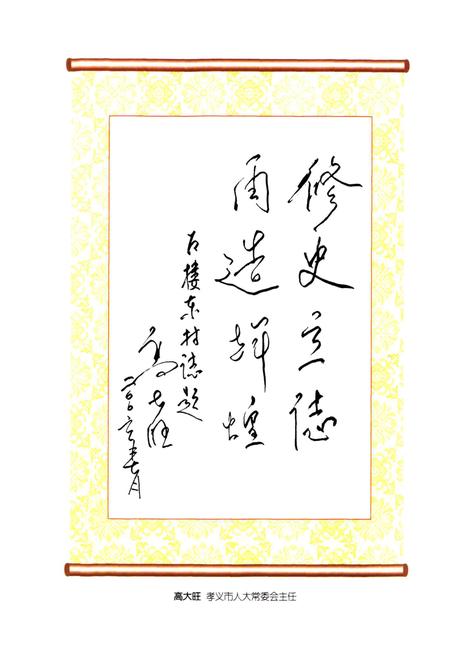 修史立誌
再造辉煌
为楼东村誌题
高大旺
二〇〇六年七月
高大旺 孝义市人大常委会主任